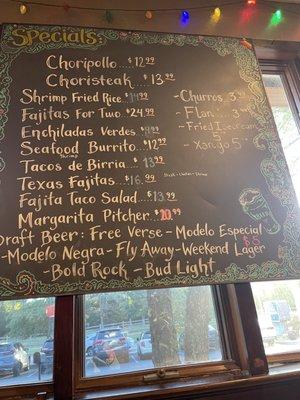 Specials:
Choripollo....$12.99
Choristeak...$13.99
Shrimp Fried Rice.
Fajitas For Two $24.99
Enchiladas Verdes
Seafood Burrito....$12.99
Shrimp
Tacos de Birria...$13.99
Texas Fajitas...$16.99
Fajita Taco Salad...$13.99
Margarita Pitcher.$20.99
Draft Beer: Free Verse - Modelo Especial
-Modelo Negra - Fly Away - Weekend Lager
-Bold Rock - Bud Light
-Churros 3
-Flan
-Fried Icecream
5
-Xango 5